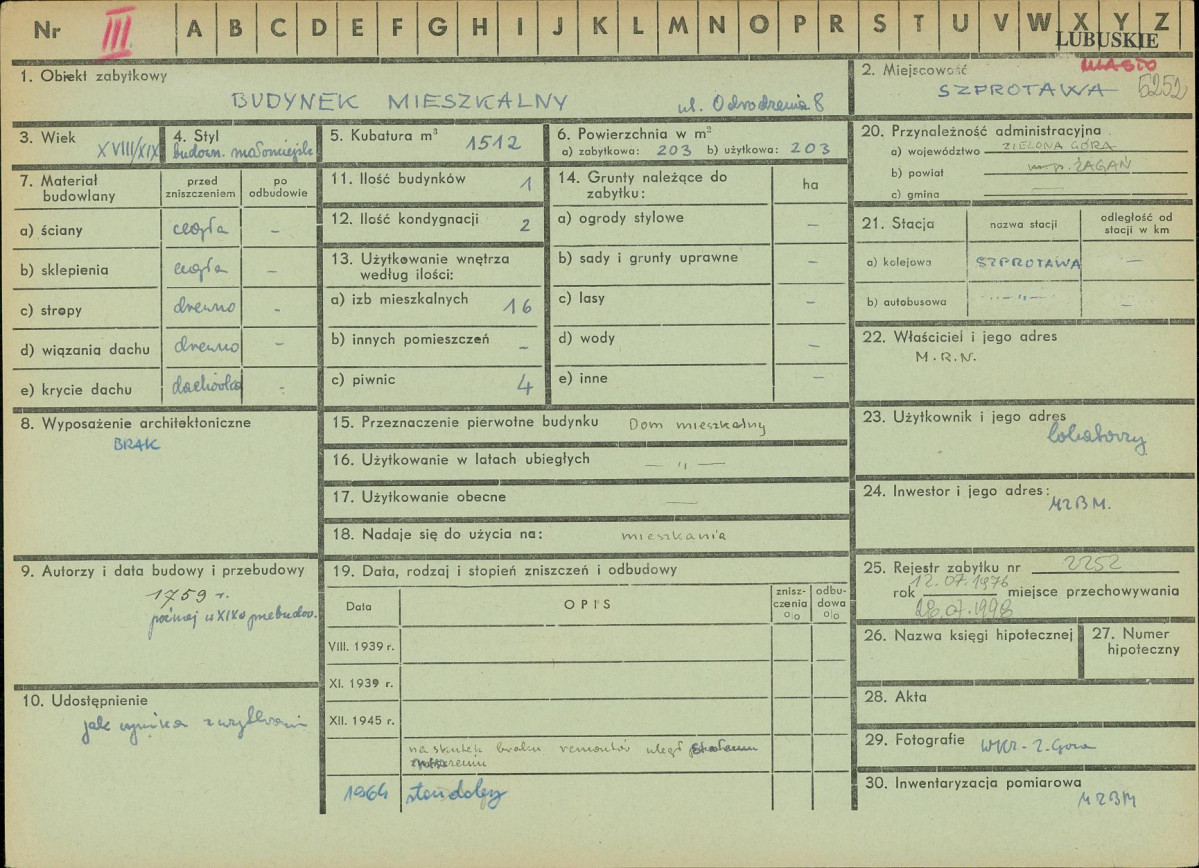 Nr III. A B C D E F G H I J K L M N O P R S T U V W X Y Z
LUBUSKIE
1. Obiekt zabytkowy
BUDYNEK MIESZKALNY ul. Odrodzenia 8
2. Miejscowość MIASTO
SZPROTAWA 5252
3. Wiek XVIII/XIX
4. Styl
budown. małomiejsk
5. Kubatura m³ 1512
6. Powierzchnia w m²
a) zabytkowa: 203 b) użytkowa: 203
20. Przynależność administracyjna
a) województwo ZIELONA GÓRA
b) powiat m.p. ŻAGAŃ
c) gmina
7. Materiał budowlany
przed zniszczeniem
po odbudowie
a) ściany cegła –
b) sklepienia cegła –
c) stropy drewno –
d) wiązania dachu drewno –
e) krycie dachu dachówka –
11. Ilość budynków 1
12. Ilość kondygnacji 2
13. Użytkowanie wnętrza
według ilości:
a) izb mieszkalnych 16
b) innych pomieszczeń –
c) piwnic 4
14. Grunty należące do
zabytku:
ha
a) ogrody stylowe –
b) sady i grunty uprawne –
c) lasy –
d) wody –
e) inne –
21. Stacja
nazwa stacji
odległość od
stacji w km
a) kolejowa SZPROTAWA –
b) autobusowa –"– –
22. Właściciel i jego adres
M.R.N.
8. Wyposażenie architektoniczne
BRAK
15. Przeznaczenie pierwotne budynku Dom mieszkalny
16. Użytkowanie w latach ubiegłych — " —
17. Użytkowanie obecne —
18. Nadaje się do użycia na: mieszkania
23. Użytkownik i jego adres
lokatorzy
24. Inwestor i jego adres:
MZBM.
9. Autorzy i data budowy i przebudowy
1759 r.
później w XIXw przebudow.
19. Data, rodzaj i stopień zniszczeń i odbudowy
Data
OPIS
znisz-
czenia
%
odbu-
dowa
%
VIII. 1939 r.
XI. 1939 r.
XII. 1945 r.
na skutek braku remontów uległ
1964 stan dobry
25. Rejestr zabytku nr 2252
12.07.1976
rok miejsce przechowywania
28.07.1998
26. Nazwa księgi hipotecznej
27. Numer
hipoteczny
10. Udostępnienie
jak wynika z
28. Akta
29. Fotografie WKZ - Z. Góra
30. Inwentaryzacja pomiarowa
MZBM